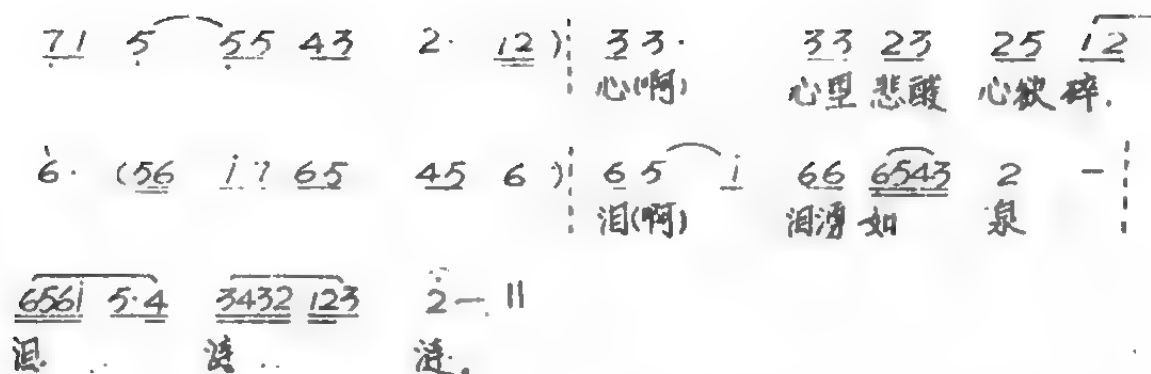 71 5 55 43 2· 12 ) 3 3· 33 23 25 12
心(啊) 心里悲酸 心欲碎.
6· (56 i 7 65 45 6 ) 6 5 i 66 6543 2 -
泪(啊) 泪涌如 泉
656i 5·4 3432 123 2 - ||
泪. .. 涟 .. 涟.